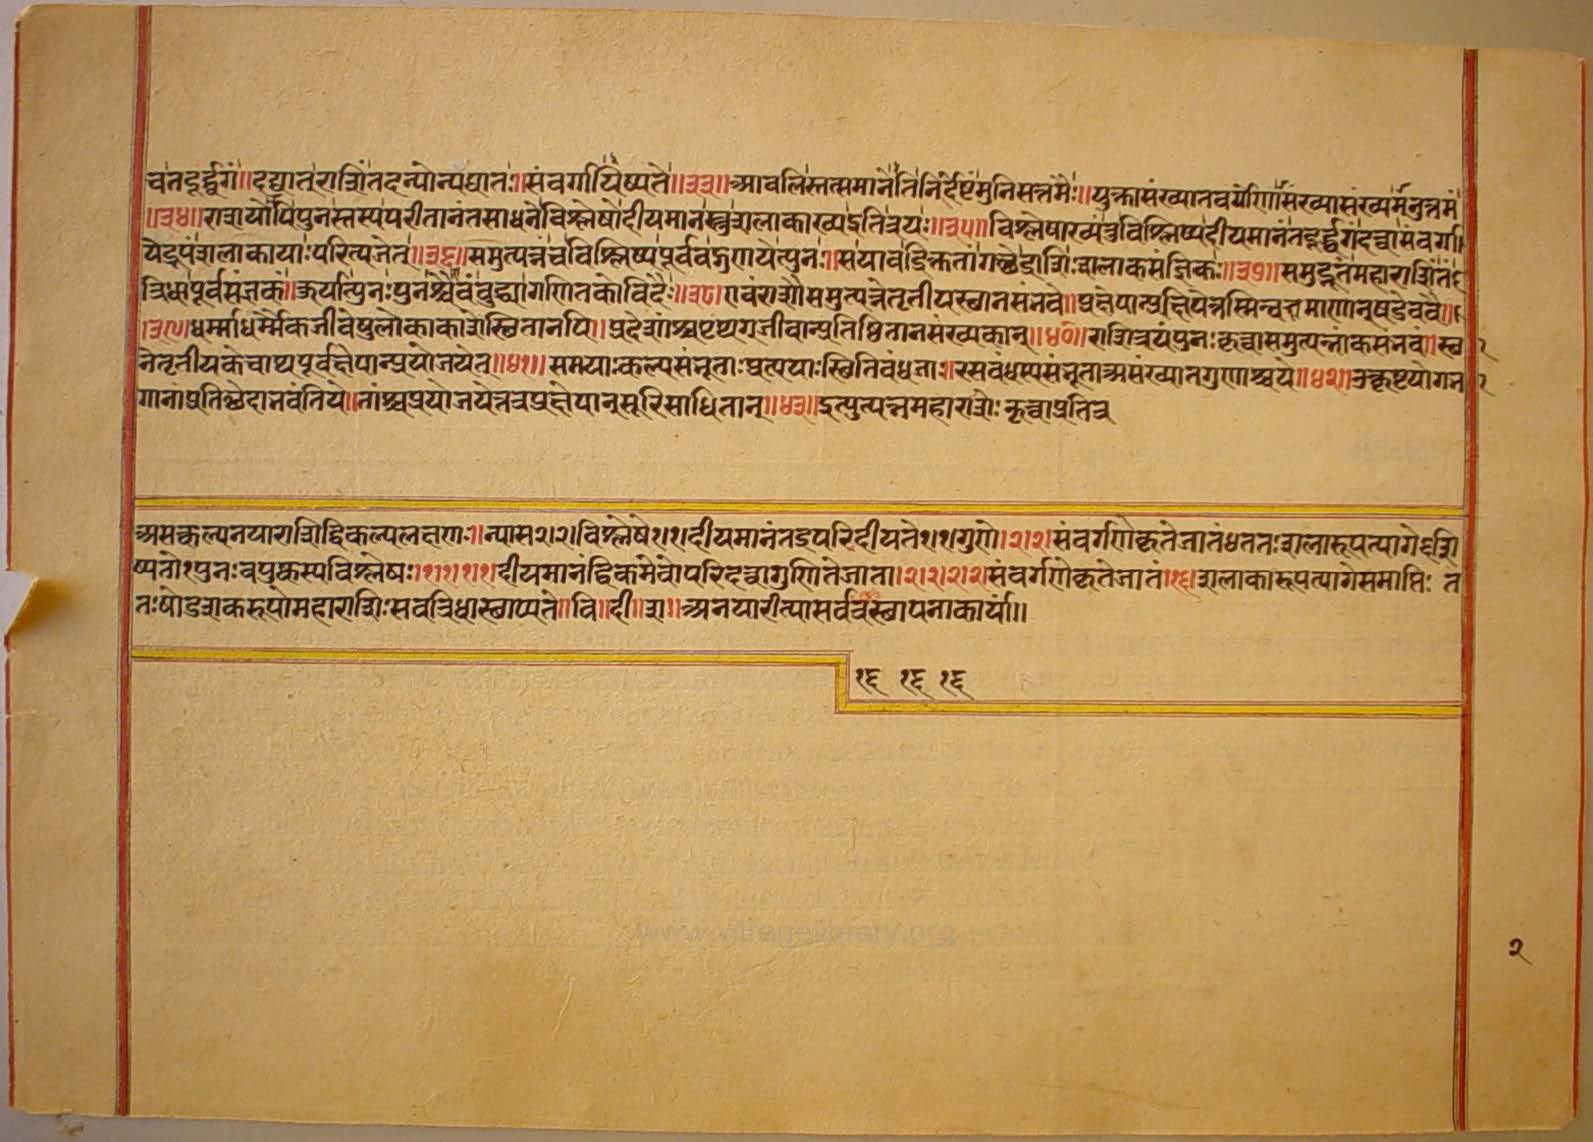 च तदूर्द्ध्वगं॥ दद्यात् राशिं तदन्योन्यघातः॥ संवर्गयिष्यते॥३३॥ आवलिस्तत्समानेति निर्देष्टं मुनिसत्तमैः॥ युक्तासंख्यातवर्गेण संख्यासंख्यमनुत्तमं
॥३४॥ राशयोपि पुनस्तस्य परीतानंतसाधने विश्लेषो दीयमानस्तु शलाकाख्य इति त्रयः॥३५॥ विश्लेषाख्यं तु विश्लिष्य दीयमानं तदूर्द्ध्वगं दत्वा संवर्ग्य
येद्रूपं शलाकायाः परित्यजेत्॥३६॥ समुत्पन्नं च विश्लिष्य पूर्ववद्गुणयेत्पुनः॥ स यावद्रिक्ततां गच्छेद्राशिः शलाकसंज्ञिकः॥३७॥ समुद्भूतं महाराशिं तं
त्रिधा पूर्वसंज्ञकं॥ कुर्यात्पुनः पुनश्चैवं बुद्ध्या गणितकोविदैः॥३८॥ एवं राशौ समुत्पन्ने तृतीयस्थानसंभवे॥ प्रक्षेपान्प्रक्षिपेत्तस्मिन्वक्ष्यमाणानुषडेव वै॥
।३९॥ धर्म्माधर्म्मैकजीवेषु लोकाकाशे स्थितानपि॥ प्रदेशांश्चाप्यपृथग्जीवान्प्रतिष्ठितानसंख्यकान्॥४०॥ राशित्रयं पुनः कृत्वा समुत्पन्नांकसंभवं॥ स्थ
ने तृतीयके चाथ पूर्वक्षेपान्प्रयोजयेत्॥४१॥ समयाः कल्पसंभूताः प्रत्ययाः स्थितिबंधजाः॥ रसबंधस्य संभूता असंख्यातगुणाश्च ये॥४२॥ उत्कृष्टयोगत १
गानां प्रतिच्छेदा नवंति ये॥ तांश्च प्रयोजयेत्तत्र प्रक्षेपान् सूरिसाधितान्॥४३॥ इत्युत्पन्नमहाराशेः कृत्वा प्रतित्र
असत्कल्पनया राशिद्विकल्पलक्षणः॥ न्यास २।२। विश्लेषे १।१। दीयमानं तदुपरि दीयते १।१ गुणे।२।२। संवर्गणे कृते जातं ४ ततः शलारूपत्यागे ऽवशि
ष्यतो १ पुनः चपुष्कस्य विश्लेषः।१।१।१।१। दीयमानं द्विकमेवोपरि दत्वा गुणिते जाता।२।२।२।२। संवर्गणे कृते जातं।१६। शलाकारूपत्यागे समाप्तिः त
तः षोडशकरूपो महाराशिः सचत्रिधा स्थाप्यते॥ वि॥ दी॥ श॥ अनया रीत्या सर्वत्र स्थापना कार्या॥
१६ १६ १६
२
www.villagelibrary.org